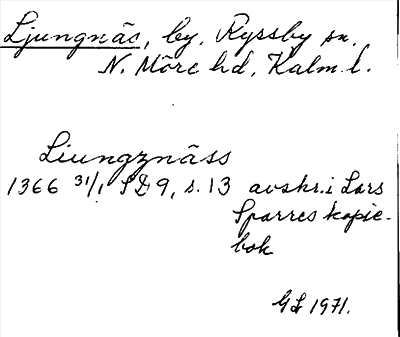 Ljungnäs, by, Ryssby sn.
N. Möre hd, Kalm. l.
Liungznäss
1366 31/1 SD 9, s. 13 avskr. i Lars
Sparres kopie-
bok
GL 1971.